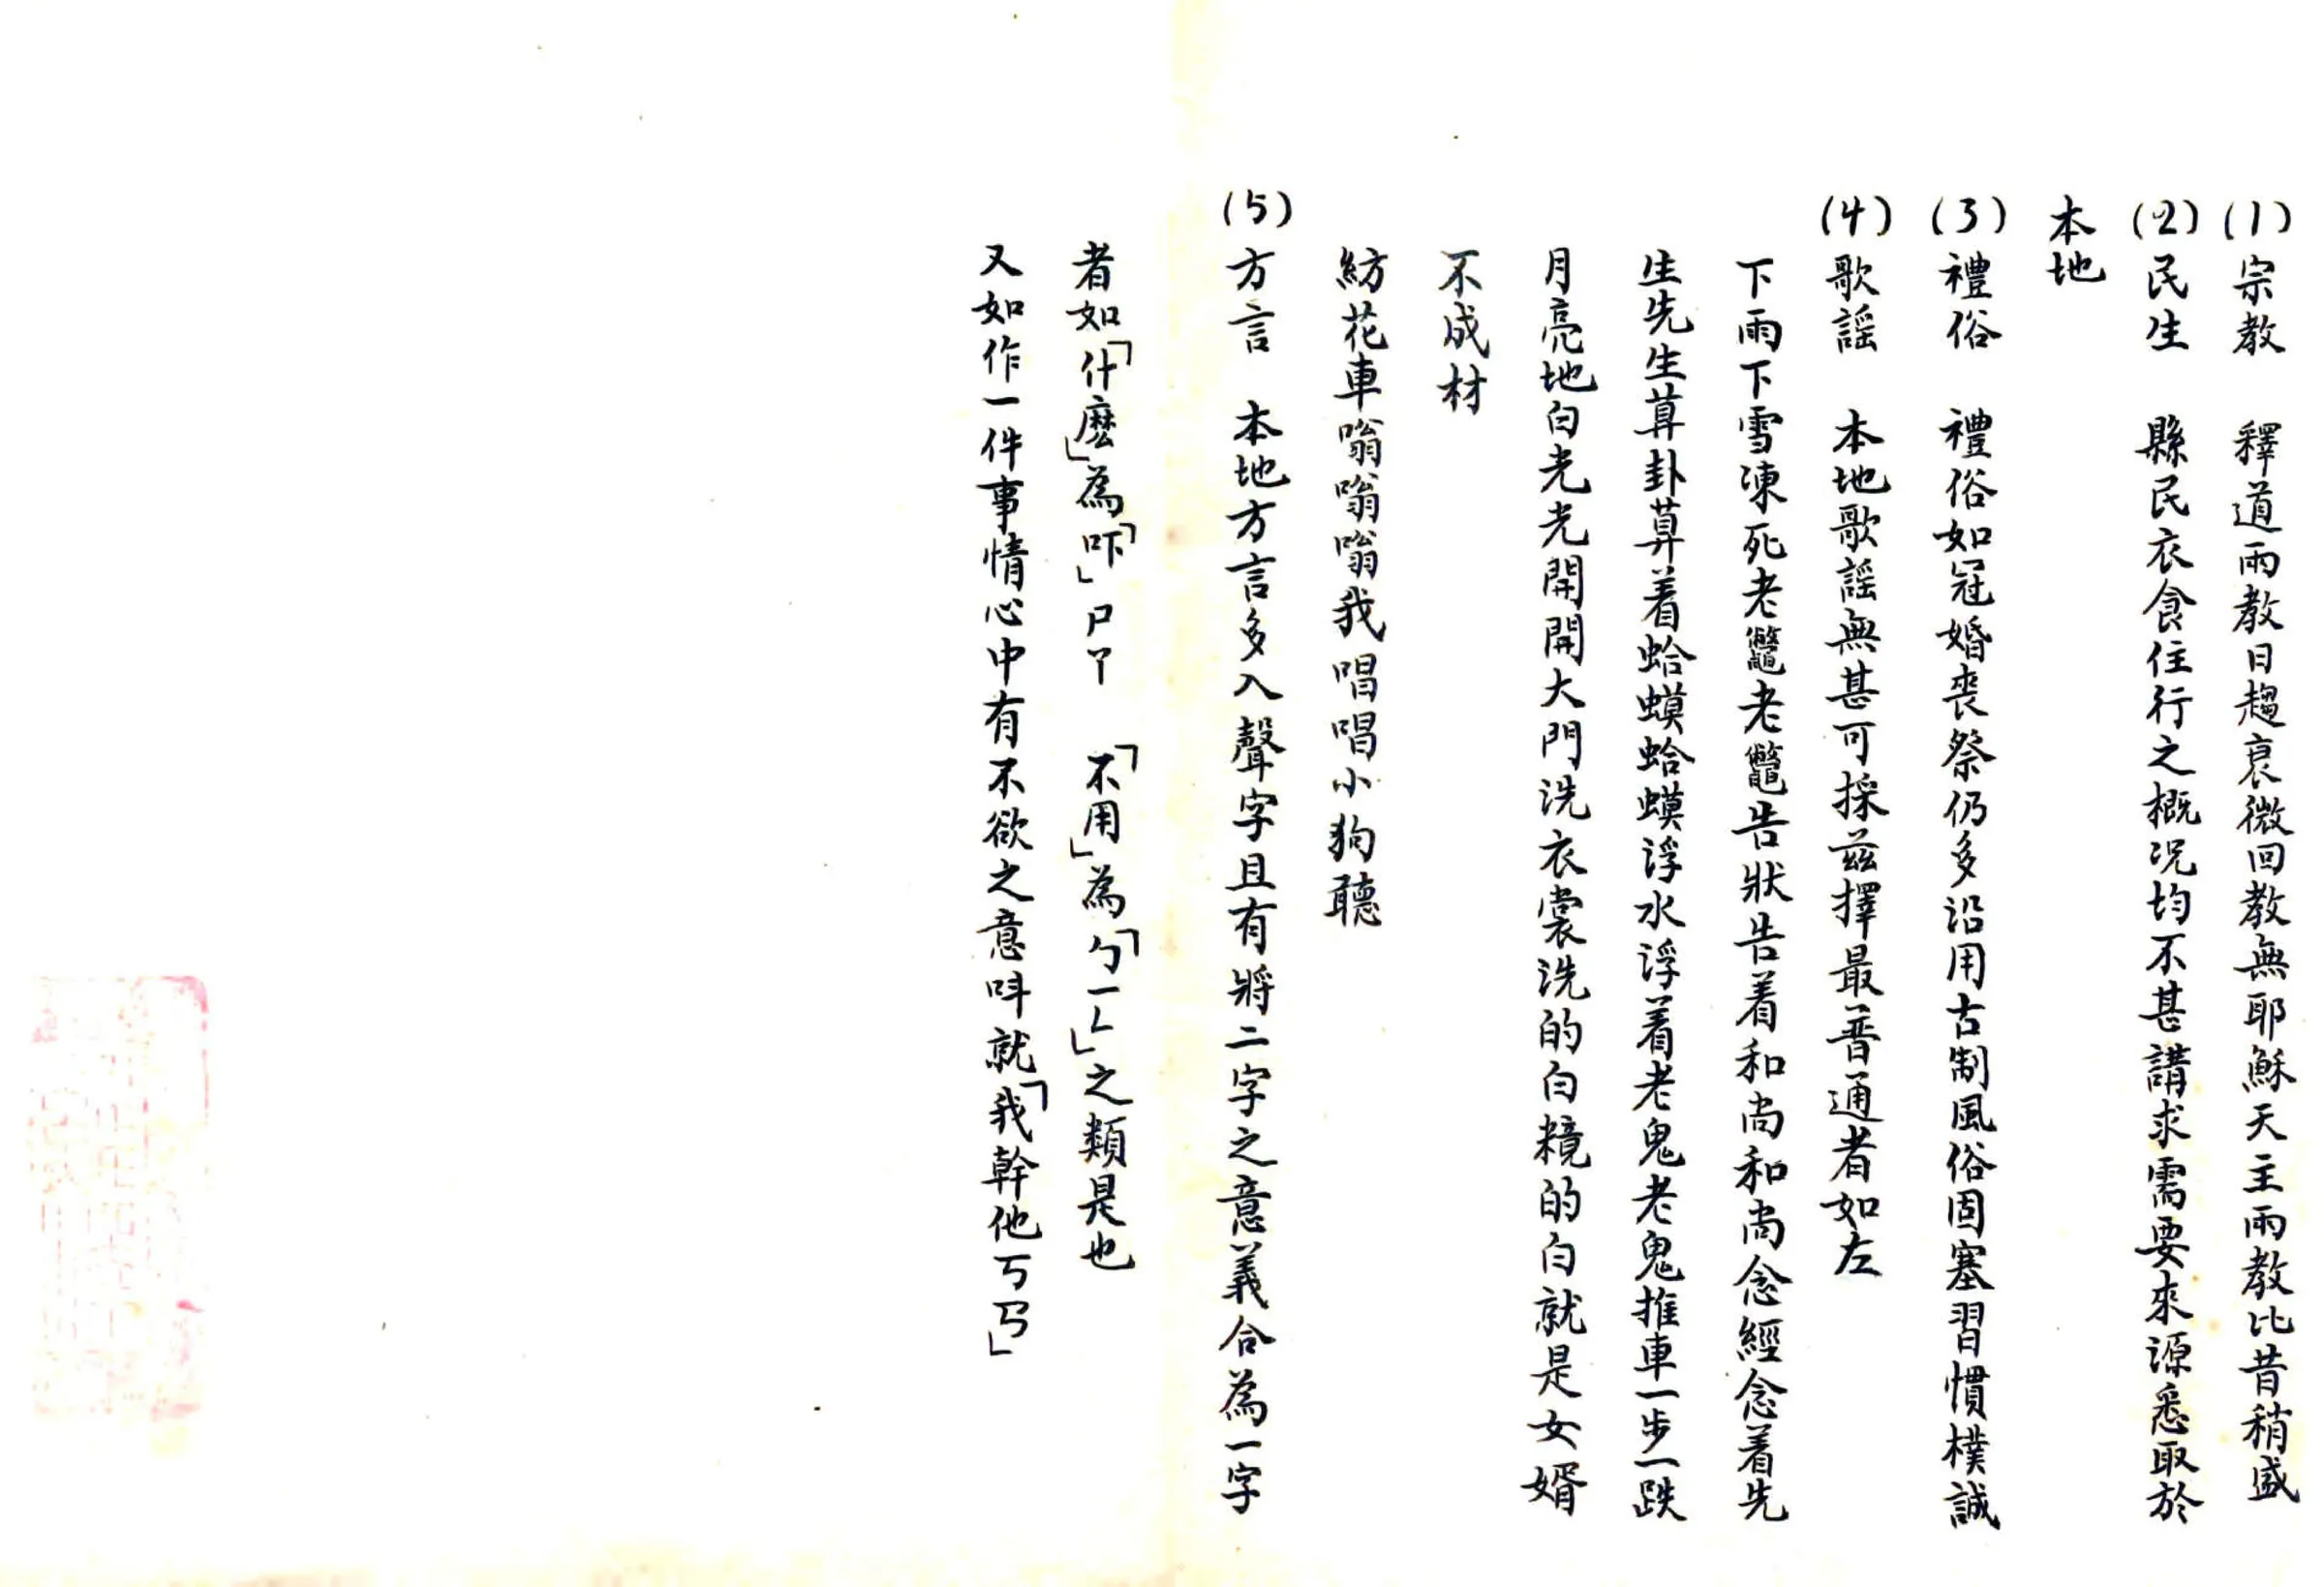 (1)宗教　釋道兩教日趨衰微回教無耶穌天主兩教比昔稍盛
(2)民生　縣民衣食住行之概況均不甚講求需要來源悉取於
本地
(3)禮俗　禮俗如冠婚喪祭仍多沿用古制風俗固塞習慣樸誠
(4)歌謠　本地歌謠無甚可採茲擇最普通者如左
下雨下雪凍死老鼈老鼈告狀告着和尚和尚念經念着先
生先生算卦算着蛤蟆蛤蟆浮水浮着老鬼老鬼推車一步一跌
月亮地白光光開開大門洗衣裳洗的白糨的白就是女婿
不成材
紡花車嗡嗡嗡我唱唱小狗聽
(5)方言　本地方言多入聲字且有將二字之意義合為一字
者如「什麽」為「吓」ㄕㄚ　「不用」為「ㄅㄧㄥ」之類是也
又如作一件事情心中有不欲之意呌就「我幹他ㄎㄢ」